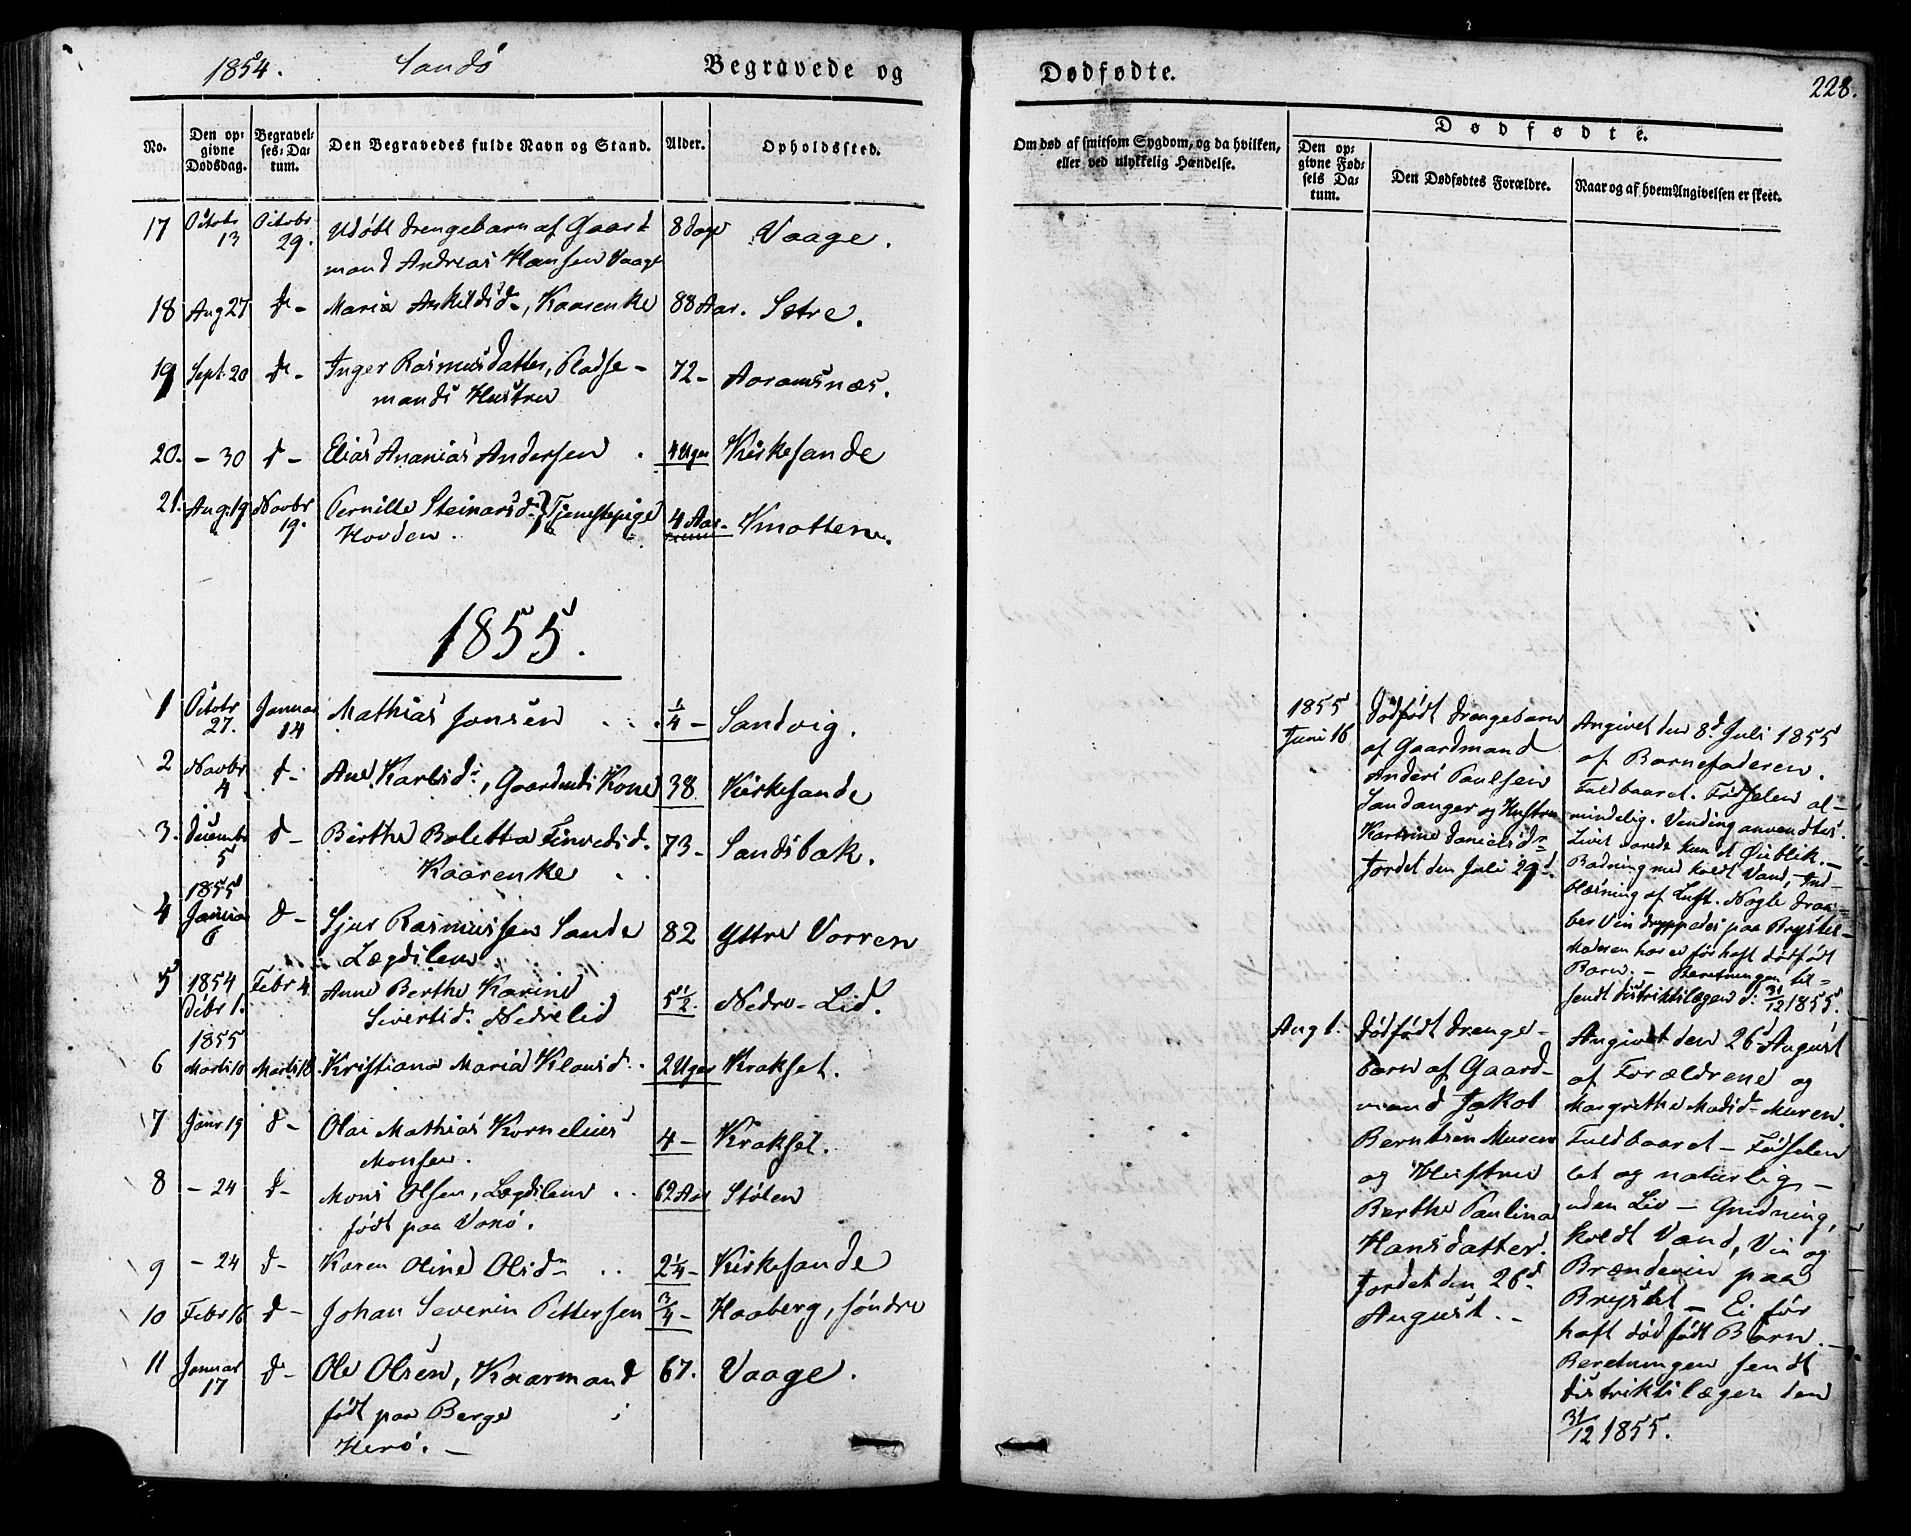 1854. Sandö Begravede og
No. Den op-givne Dødsdag. Begravel-ses-Da-tum. Den Begravedes fulde Navn og Stand. Alder. Opholdssted.
17 Octobr 13 Octobr 29. Udöbt Drengebarn af Gaard- 8 Dage Vaage.
mand Andreas Hansen Vaage
18 Aug 27 do- Maria Askildsdr, Kaarenke 88 Aar. Sætre.
19 Sept. 20 do- Inger Rasmusdatter, Pladse- 72- Aaramsnæs.
mands Hustru
20. - 30 d- Elias Ananias Andersen 4 Uger Kirkesande
21. Aug. 19 Novbr 19. Pernille Steinarsdr } Tjenestepige 4 Aar- Knotten.
Hovden.
1855.
1 Octobr 27. Januar 14 Mathias Jonsen 1/4 - Sandvig.
2 Novbr 4 d- Ane Karlsdr, Gaardmds Kone 38 Kirkesande
3. Decembr 5 d- Berthe Boletta Finvedsd. 73- Sandsbak.
Kaarenke
1855
4 Januar 6 d- Sjur Rasmussen Sande 82 Yttre Vorren
Lægdslem
5 1854 Debr 1. Febr 4. Anne Berthe Karine 5 1/2 Nedre-Lid.
Sivertsdr Nedrelid
1855
6 Marts 10 Marts 18. Kristiana Maria Klausd. 2 Uger Krakset.
7 Janr 19 d- Olai Mathias Kornelius 4 - Krakset.
Monsen.
8 - 24 d- Mons Olsen, Lægdslem 62 Aar Stölen
född paa Vanö.
9 - 24 d- Karen Oline Olsdr 2 1/4 - Kirkesande
10 Febr 16 d- Johan Severin Pettersen 3/4 - Haaberg, söndre
11 Januar 17 d- Ole Olsen, Kaarmand 67. Vaage.
födt paa Berge i
Herö. -
Dødfødte. 228.
Om død af smitsom Sygdom, og da hvilken,
eller ved ulykkelig Hændelse.
Dødfødte.
Den op-givne Fød-sels Da-tum. Den Dødfødtes Forældre. Naar og af hvem Angivelsen er skeet.
1855
Juni 16
Dödfödt Drengebarn
af Gaardmand
Anders Paulsen
Sandanger og Hustru
Karrine Danielsdr
Jordet den Juli 29d.
Angivet den 8d Juli 1855
af Barnefaderen.
Fuldbaaret. Födselen al-
mindelig. Vending anvendtes.
Livet varede kun et Öieblik. -
Badning med koldt Vand, Ind-
blæsning af Luft. Nogle Draa-
ber Vin dryppedes paa Brystet -
Moderen har ei för haft dödfödt
Barn. - Beretningen til-
sendt Distriktslægen d: 31/12 1855.
Aug 1.
Dödfödt Drenge-
barn af Gaard-
mand Jakob
Berntsen Muren
og Hustru
Berthe Paulina
Hansdatter.
Jordet den 26d
August. -
Angivet den 26d August
af Forældrene og
Margrethe Madsdr Muren.
Fuldbaaret - Födselen
let og naturlig -
uden Liv - Gnidning,
koldt Vand, Vin og
Brændeviin paa
Brystet - Ei för
haft dödfödt Barn. -
Beretningen sendt
Distriktslægen den
31/12 1855.